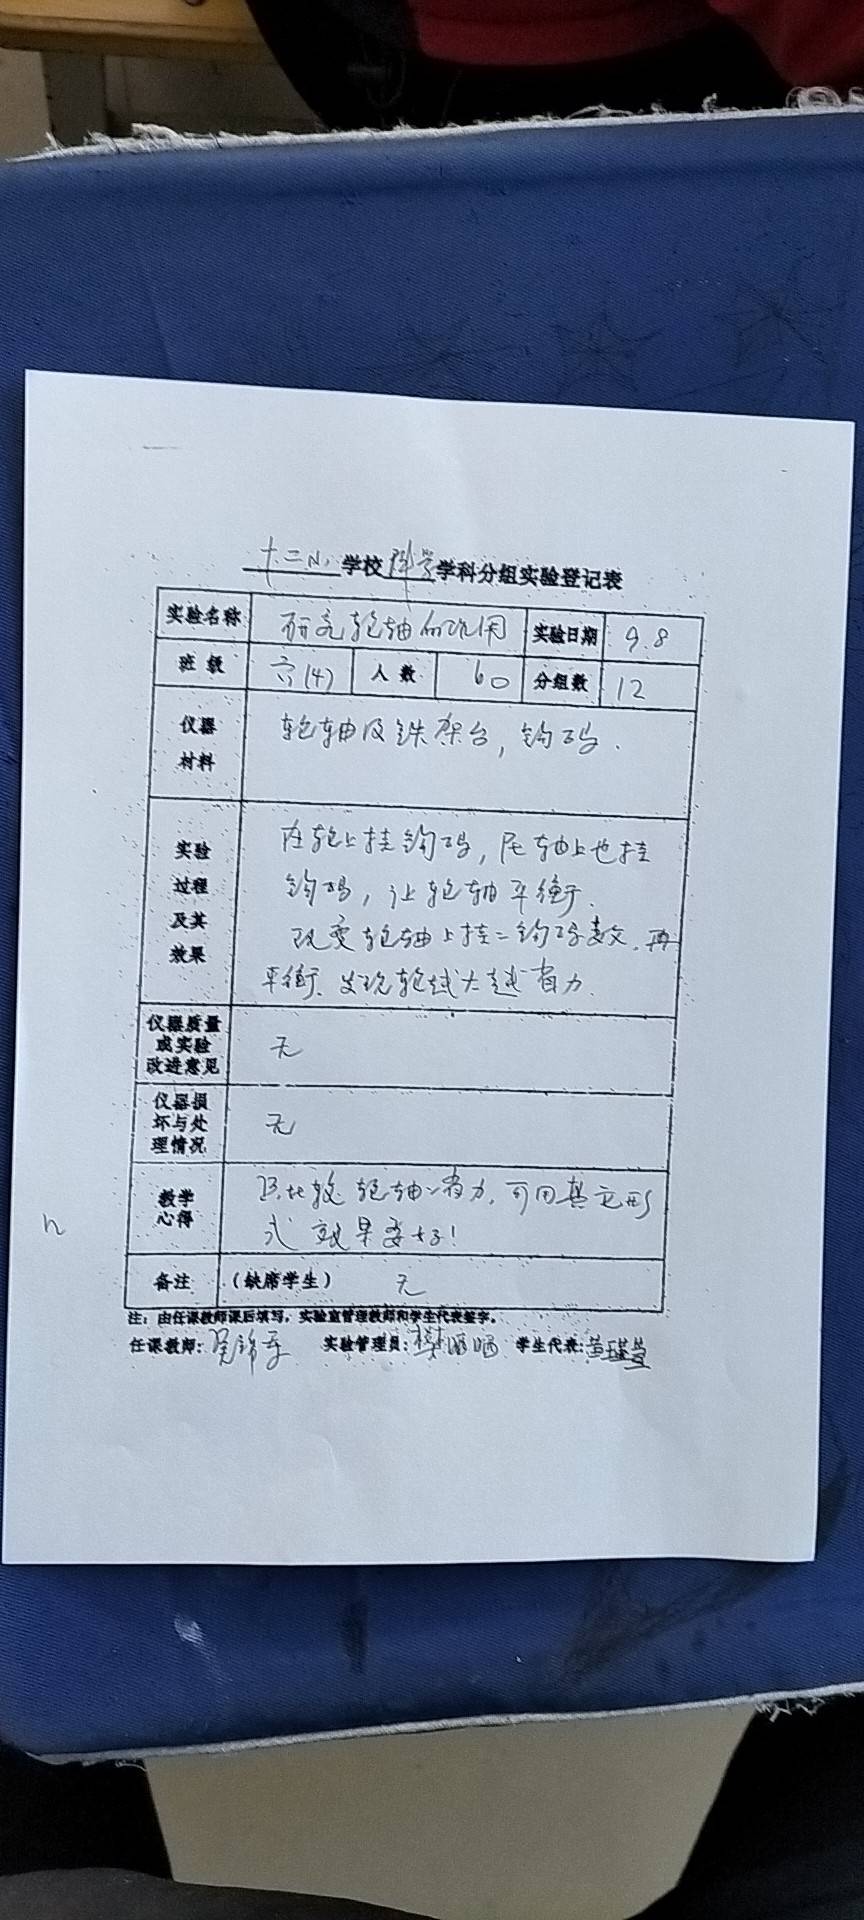 十二小学校科学学科分组实验登记表
实验名称 研究轮轴的作用 实验日期 9.8
班级 六(4) 人数 60 分组数 12
仪器材料 轮轴及铁架台,钩码.
实验过程及其效果
在轮上挂钩码,在轴上也挂
钩码,让轮轴平衡.
改变轮轴上挂的钩码数,再
平衡.发现轮越大越省力.
仪器质量或实验改进意见 无
仪器损坏与处理情况 无
教学心得
比较轮轴省力,可用其它形
式效果更好!
备注 (缺席学生) 无
注:由任课教师课后填写,实验室管理教师和学生代表签字。
任课教师:吴锦 实验管理员:樊 学生代表:黄